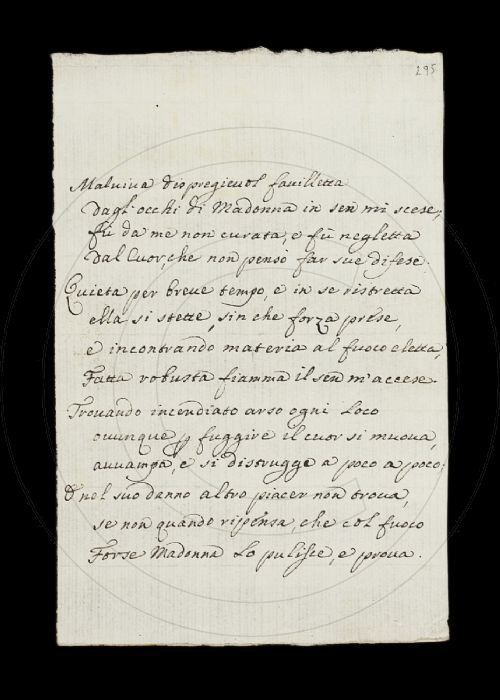 295
Malviva dispregievol favilletta
dagl'occhi di Madonna in sen mi scese,
fù da me non curata, e fù negletta
dal Cuor, che non pensò far sue difese.
Quieta per breve tempo, e in se ristretta
ella si stette, sin che forza prese,
e incontrando materia al fuoco eletta,
Fatta robusta fiamma il sen m'accese.
Trovando incendiato arso ogni loco
ovunque fuggire il cuor si muova,
avvampa, e si distrugge a poco a poco;
E nel suo danno altro piacer non trova,
se non quando ripensa, che col fuoco
Forse Madonna lo pulisce, e prova.